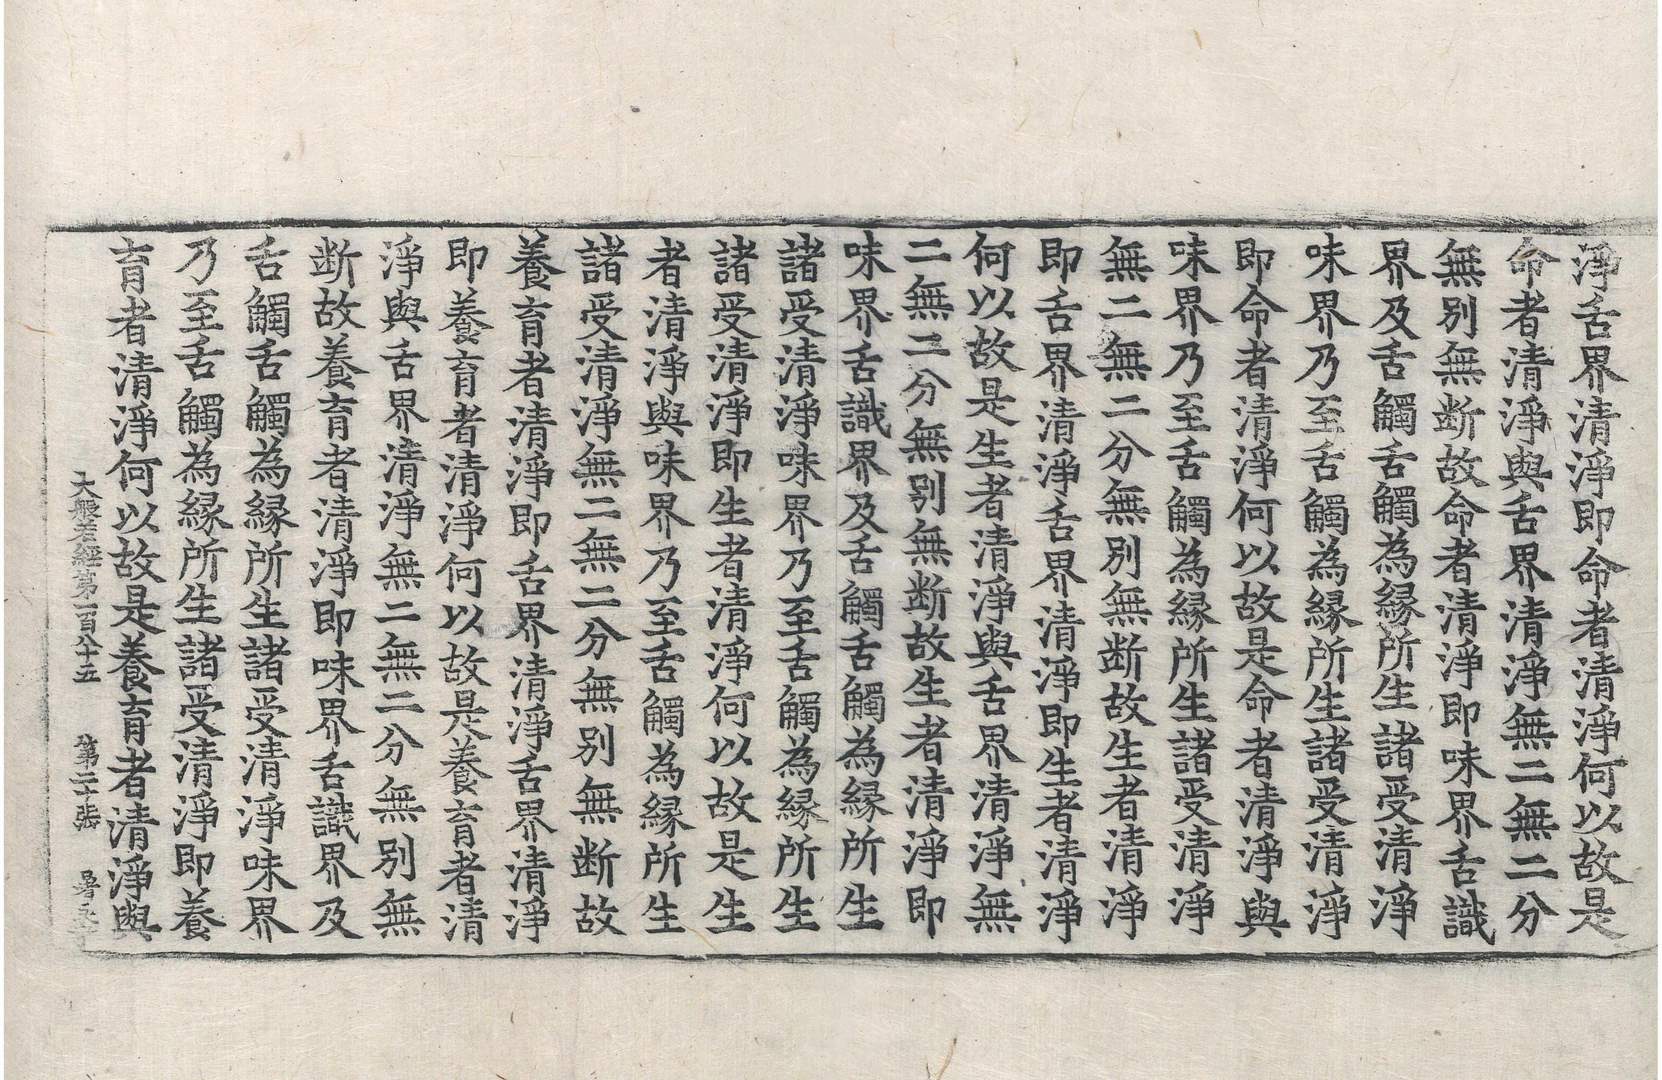 淨舌界清淨即命者清淨何以故是
命者清淨與舌界清淨無二無二分
無別無断故命者清淨即味界舌識
界及舌觸舌觸為縁所生諸受清淨
味界乃至舌觸為縁所生諸受清淨
即命者清淨何以故是命者清淨與
味界乃至舌觸為縁所生諸受清淨
無二無二分無別無断故生者清淨
即舌界清淨舌界清淨即生者清淨
何以故是生者清淨與舌界清淨無
二無二分無別無断故生者清淨即
味界舌識界及舌觸舌觸為縁所生
諸受清淨味界乃至舌觸為縁所生
諸受清淨即生者清淨何以故是生
者清淨與味界乃至舌觸為縁所生
諸受清淨無二無二分無別無断故
養育者清淨即舌界清淨舌界清淨
即養育者清淨何以故是養育者清
淨與舌界清淨無二無二分無別無
断故養育者清淨即味界舌識界及
舌觸舌觸為縁所生諸受清淨味界
乃至舌觸為縁所生諸受清淨即養
育者清淨何以故是養育者清淨與
大般若經第一百八十五 第二十張